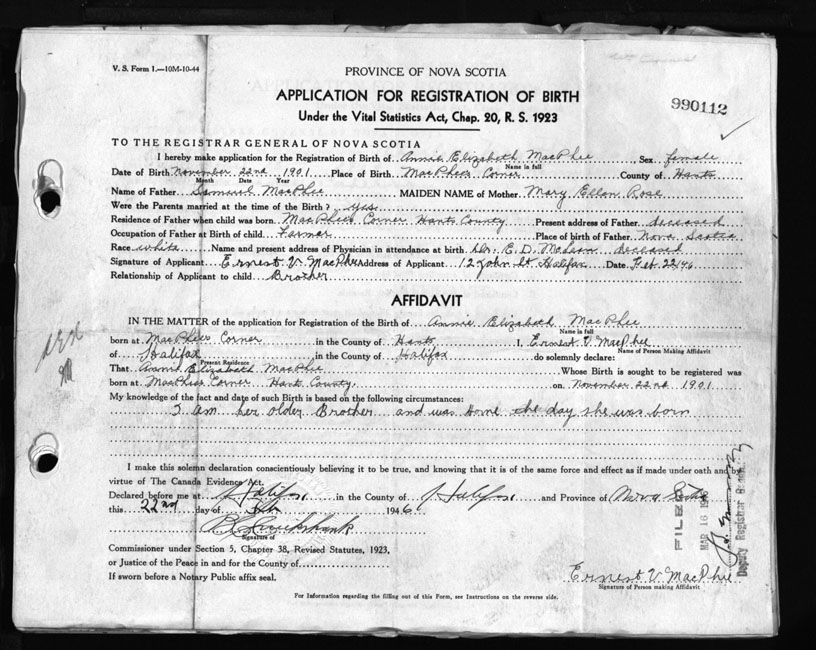 V. S. Form 1.—10M-10-44
PROVINCE OF NOVA SCOTIA
990112
APPLICATION FOR REGISTRATION OF BIRTH
Under the Vital Statistics Act, Chap. 20, R. S. 1923
TO THE REGISTRAR GENERAL OF NOVA SCOTIA
I hereby make application for the Registration of Birth of Annie Elizabeth MacPhee, Sex female
Name in full
Date of Birth November 22nd 1901 Place of Birth MacPhees Corner County of Hants
Month Date Year
Name of Father Samuel MacPhee MAIDEN NAME of Mother Mary Ellen Rose
Were the Parents married at the time of the Birth? yes
Residence of Father when child was born MacPhees Corner Hants County Present address of Father deceased
Occupation of Father at Birth of child Farmer Place of birth of Father Nova Scotia
Race white Name and present address of Physician in attendance at birth Dr. E. D. deceased
Signature of Applicant Ernest V. MacPhee Address of Applicant 12 John St. Halifax Date Feb. 22/46
Relationship of Applicant to child Brother
AFFIDAVIT
IN THE MATTER of the application for Registration of the Birth of Annie Elizabeth MacPhee
Name in full
born at MacPhees Corner in the County of Hants I, Ernest V. MacPhee
Name of Person Making Affidavit
of Halifax in the County of Halifax do solemnly declare:
Present Residence
That Annie Elizabeth MacPhee Whose Birth is sought to be registered was
born at MacPhees Corner Hants County. on November 22nd 1901
My knowledge of the fact and date of such Birth is based on the following circumstances:
I am her older Brother and was Home the day she was born
I make this solemn declaration conscientiously believing it to be true, and knowing that it is of the same force and effect as if made under oath and by
virtue of The Canada Evidence Act.
Declared before me at Halifax in the County of Halifax and Province of Nova Scotia
this 22nd day of Feb 1946.
Signature of
Commissioner under Section 5, Chapter 38, Revised Statutes, 1923,
or Justice of the Peace in and for the County of
If sworn before a Notary Public affix seal.
FILED
MAR 16 1946
Deputy Registrar
Ernest V. MacPhee
Signature of Person making Affidavit
For Information regarding the filling out of this Form, see Instructions on the reverse side.